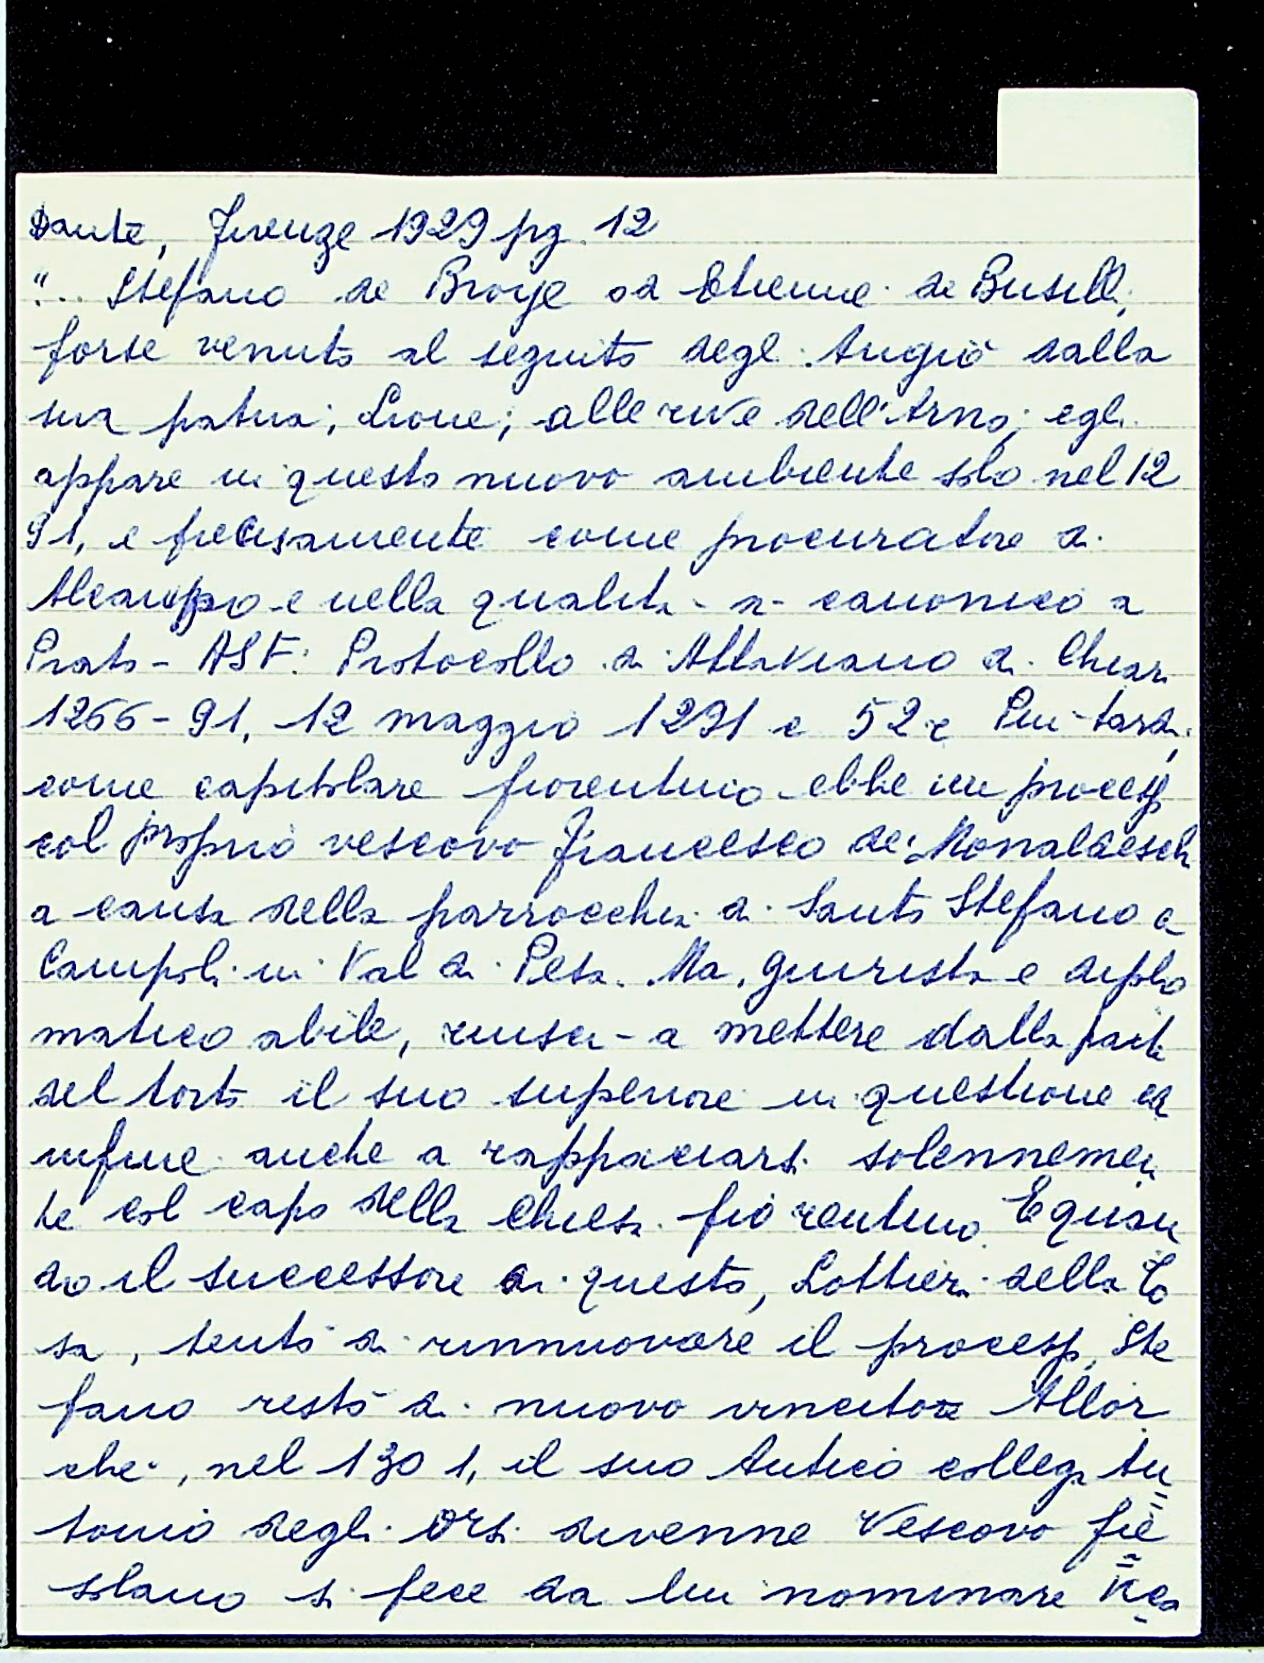 Dante, Firenze 1929 pg. 12
".. Stefano de Broye od Etienne de Busill,
forse venuto al seguito degli Angiò dalla
sua patria, Lione, alle rive dell'Arno; egli
appare in questo nuovo ambiente solo nel 12
91, e precisamente come procuratore di
e nella qualità di canonico a
Prato - ASF. Protocollo di Attaviano di Chiari
1266-91, 12 maggio 1291 c 52 r Più tardi,
come capitolare fiorentino ebbe un processo
col proprio vescovo Francesco dei Monaldeschi
a causa della parrocchia di Santo Stefano a
Campoli in Val di Pesa. Ma, giurista e diplo
matico abile, riuscì a mettere dalla parte
del torto il suo superiore in questione ed
infine anche a rappaciarsi solennemen
te col capo della Chiesa fiorentina. E quan
do il successore di questo, Lottieri della To
sa, tentò di rinnuovare il processo, Ste
fano restò di nuovo vincitore Allor
chè, nel 1301, il suo Antico collega An
tonio degli Orsi divenne Vescovo fie
solano si fece da lui nominare Vica